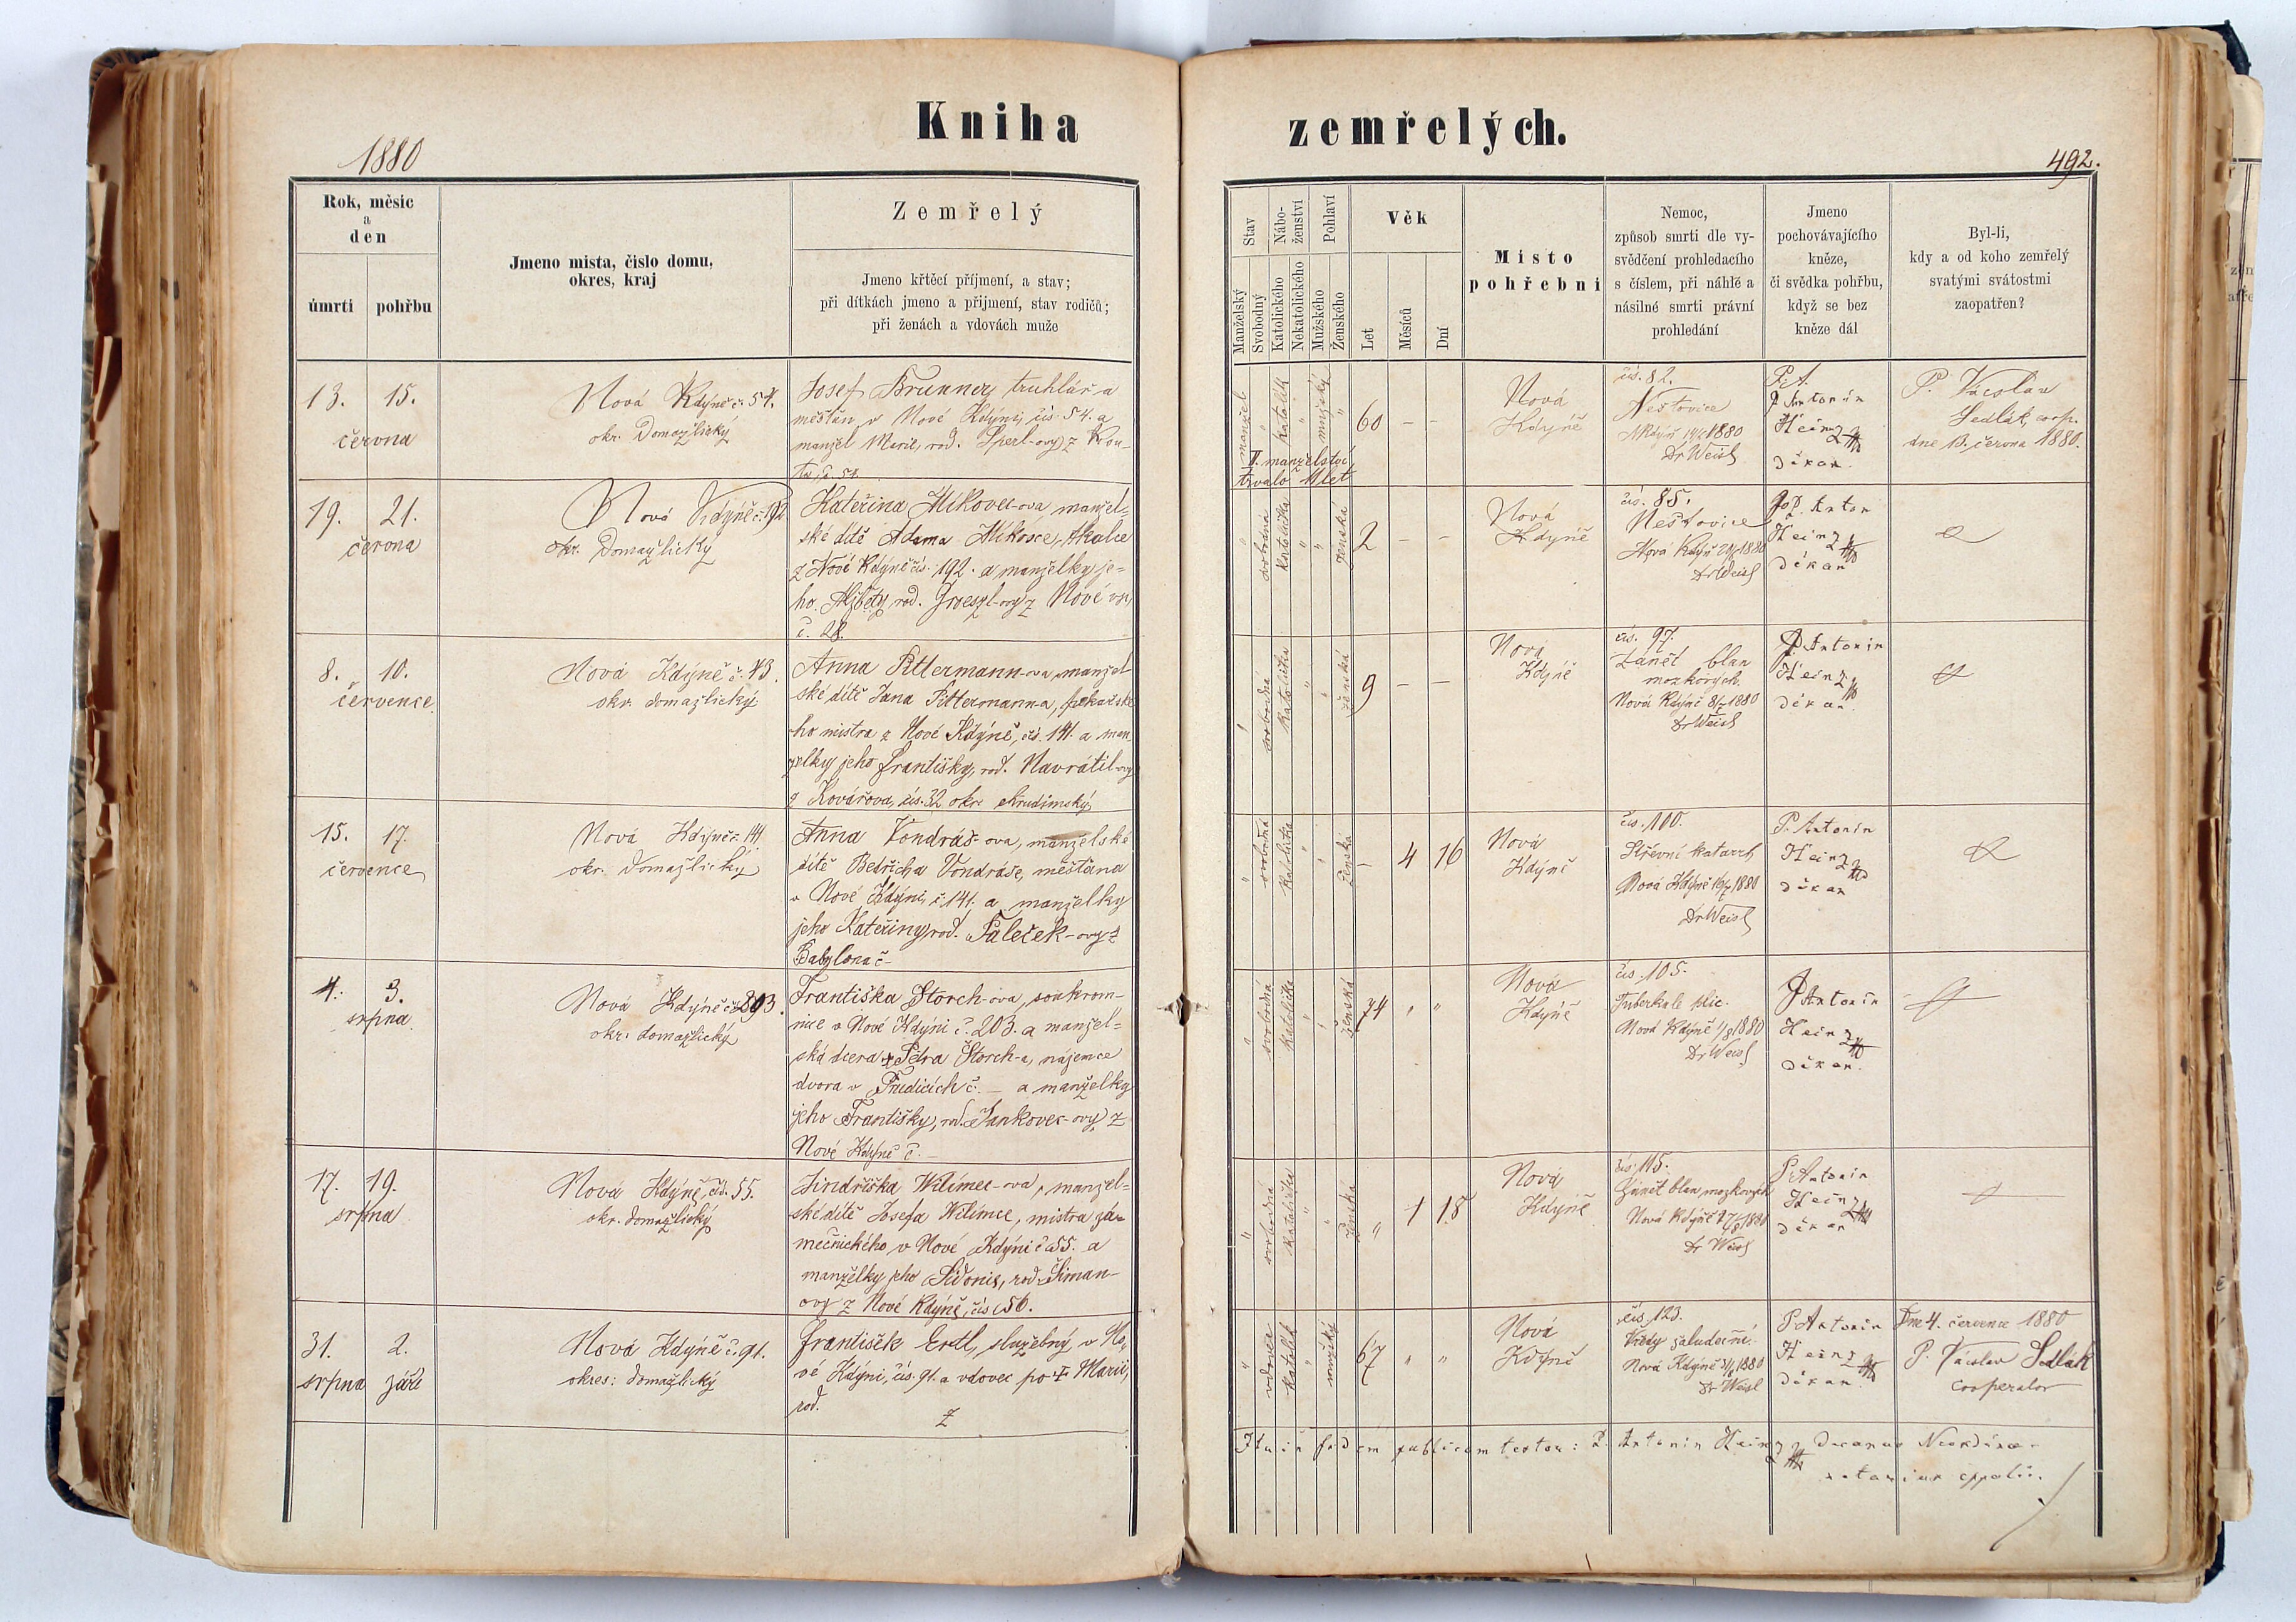 Kniha zemřelých.
1880
492.
Rok, měsíc
a
den
úmrtí
pohřbu
Jmeno mista, čislo domu,
okres, kraj
Zemřelý
Jmeno křtěcí příjmení, a stav;
při dítkách jmeno a přijmení, stav rodičů;
při ženách a vdovách muže
Stav
Manželský
Svobodný
Nábo-
ženství
Katolického
Nekatolického
Pohlaví
Mužského
Ženského
Věk
Let
Měsíců
Dní
Misto
pohřebni
Nemoc,
způsob smrti dle vy-
svědčení prohledacího
s číslem, při náhlé a
násilné smrti právní
prohledání
Jmeno
pochovávajícího
kněze,
či svědka pohřbu,
když se bez
kněze dál
Byl-li,
kdy a od koho zemřelý
svatými svátostmi
zaopatřen?
13. 15.
června
Nová Kdýně č. 54.
okr. Domažlický
Josef Brunner, truhlář a
měšťan v Nové Kdýni, čís. 54. a
manžel Marie, rod. Sperl-ový z Kou-
ta, č. 54.
manžel
katolík
mužský
60 – –
II. manželství
trvalo 11 let
Nová
Kdýně
čís. 82.
Neštovice
1880
Dr Weisl
P. Antonín
Heinz
děkan.
P. Václav
Sedlák, coop.
dne 13. června 1880.
19. 21.
června
Nová Kdýně č. 192
okr. Domažlický
Kateřina Mikovec-ova, manžel-
ské dítě Adama Mikovce, tkalce
z Nové Kdýně čís. 192. a manželky je-
ho Alžběty, rod. z Nové vsi,
č. 28.
svobodná
katolička
ženská
2 – –
Nová
Kdýně
čís. 85.
Neštovice
Nová Kdýň 1880
Dr Weisl
P. Anton
Heinz
děkan
8. 10.
července
Nová Kdýně č. 43.
okr. domažlický
Anna Pittermann-ova, manžel
ské dítě Jana Pittermann-a, pekařské
ho mistra z Nové Kdýně, čís. 141. a man
želky jeho Františky, rod. Navrátil-ovy
z Kovářova, čís. 32 okr. chrudimský
svobodná
katolička
ženská
9 – –
Nová
Kdýně
čís. 97.
Zánět blan
mozkových.
Nová Kdýně 8/7 1880
Dr Weisl
P Antonín
Heinz
děkan.
15. 17.
července
Nová Kdýně č. 141.
okr. Domažlický
Anna Vondráš-ova, manželské
dítě Bedřicha Vondráše, měšťana
v Nové Kdýni, č. 141. a manželky
jeho Kateřiny, rod. Paleček-ovy z
Babylona č –
svobodná
katolička
ženská
– 4 16
Nová
Kdýně
čís. 100.
Střevní katarrh
Nová Kdýně 1880
Dr Weisl
P. Antonín
Heinz
děkan
4. 3.
srpna
Nová Kdýně č. 203.
okr. domažlický
Františka Štorch-ova, soukrom-
nice v Nové Kdýni č. 203. a manžel-
ská dcera † Petra Štorch-a, nájemce
dvora v č. – a manželky
jeho Františky, rod. Jankovec-ovy z
Nové Kdýně č. –
svobodná
katolička
ženská
74 " "
Nová
Kdýně
čís. 105.
Tuberkule plic.
Nová Kdýně 1/8 1880
Dr Weisl
P Antonín
Heinz
děkan.
17. 19.
srpna
Nová Kdýně, čís. 55.
okr. domažlický
Jindřiška Wilímec-ova, manžel-
ské dítě Josefa Wilímce, mistra zá-
mečnického v Nové Kdýni č. 55. a
manželky jeho Sidonie, rod. Šiman-
ovy z Nové Kdýně, čís. 56.
svobodná
katolička
ženská
" 1 18
Nová
Kdýně
čís. 115.
Zánět blan mozkových
Nová Kdýně 17/8 1880
Dr Weisl
P. Antonín
Heinz
děkan
31. 2.
srpna září
Nová Kdýně č. 91.
okres: domažlický
František Ertl, služebný v No-
vé Kdýni, čís. 91. a vdovec po † Marii,
rod.
z
vdovec
katolík
mužský
67 " "
Nová
Kdýně
čís. 123.
Vředy žaludeční.
Nová Kdýně 31/8 1880
Dr Weisl
P Antonín
Heinz
děkan.
Dne 4. července 1880
P. Václav Sedlák
cooperator
Ita in fidem publicam testor: P. Antonín Heinz